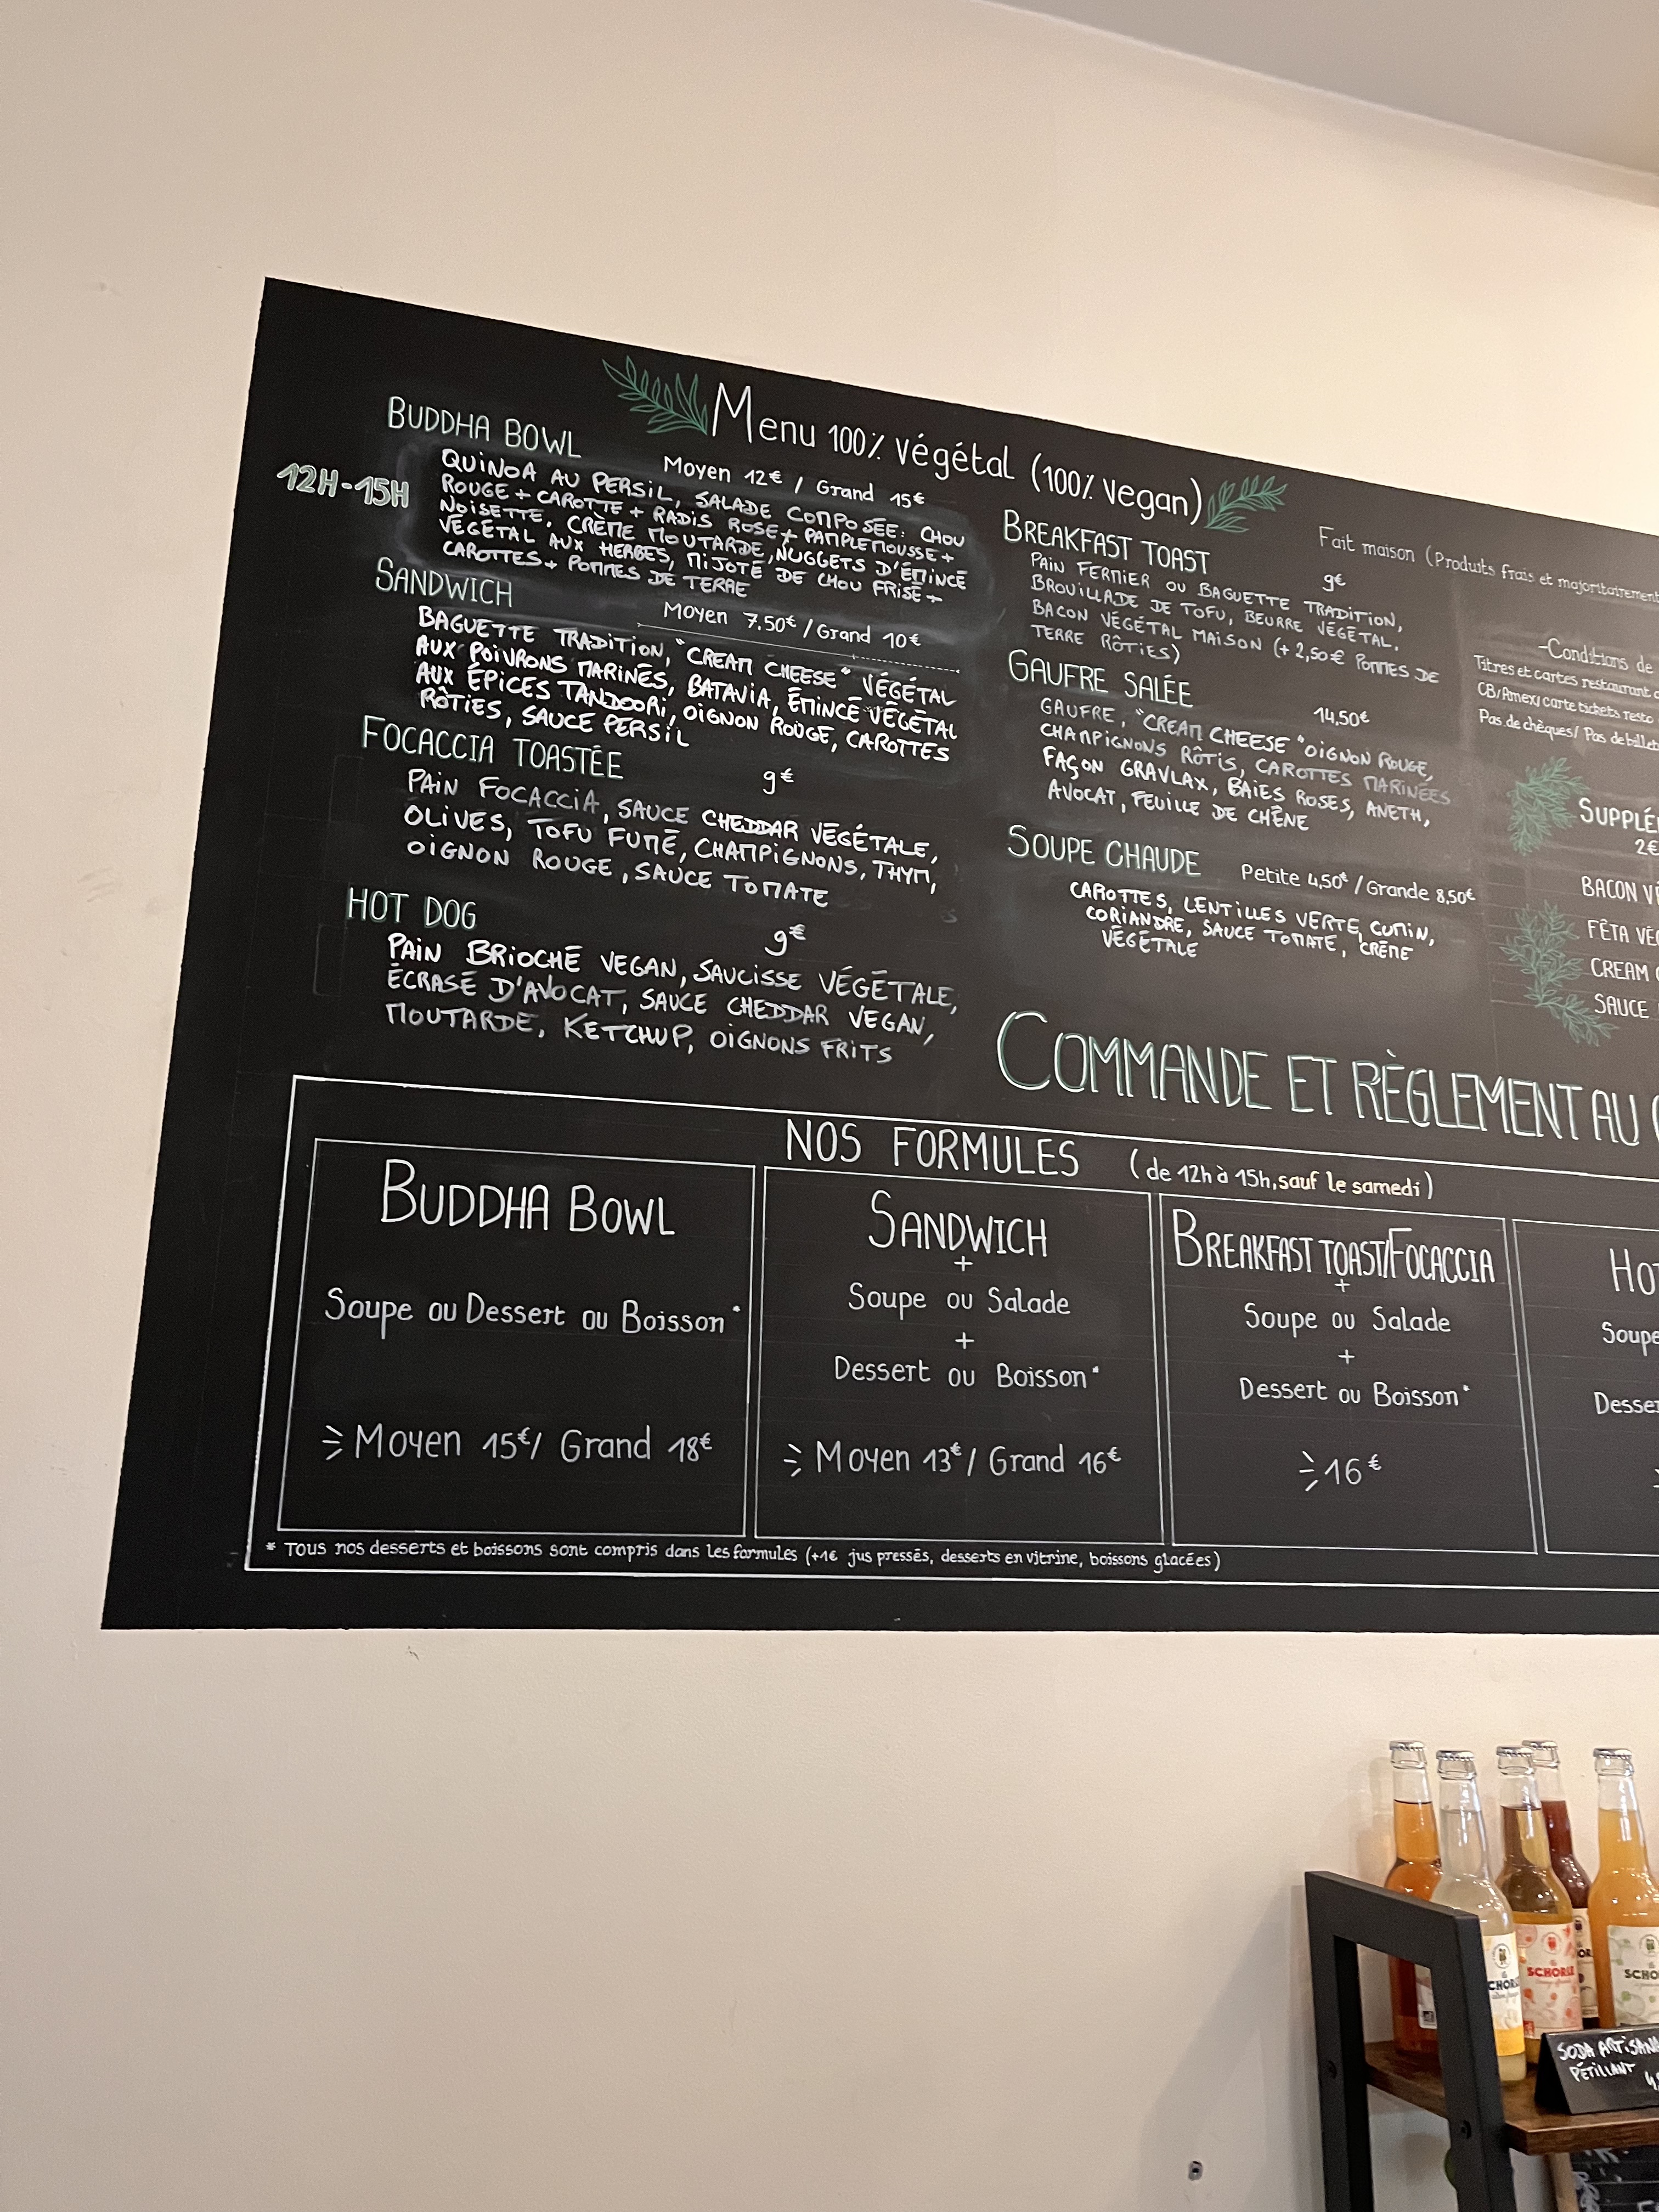 Menu 100% végétal (100% vegan)
BUDDHA BOWL
Moyen 12€ / Grand 15€
12H-15H
QUINOA AU PERSIL, SALADE COMPOSÉE: CHOU
ROUGE + CAROTTE + RADIS ROSE + PAMPLEMOUSSE +
NOISETTE, CRÈME MOUTARDE, NUGGETS D'ÉMINCÉ
VÉGÉTAL AUX HERBES, MIJOTÉ DE CHOU FRISÉ +
CAROTTES + POMMES DE TERRE
SANDWICH
Moyen 7.50€ / Grand 10€
BAGUETTE TRADITION, "CREAM CHEESE" VÉGÉTAL
AUX POIVRONS MARINÉS, BATAVIA, ÉMINCÉ VÉGÉTAL
AUX ÉPICES TANDOORI, OIGNON ROUGE, CAROTTES
RÔTIES, SAUCE PERSIL
FOCACCIA TOASTÉE
9€
PAIN FOCACCIA, SAUCE CHEDDAR VÉGÉTALE,
OLIVES, TOFU FUMÉ, CHAMPIGNONS, THYM,
OIGNON ROUGE, SAUCE TOMATE
HOT DOG
9€
PAIN BRIOCHÉ VEGAN, SAUCISSE VÉGÉTALE,
ÉCRASÉ D'AVOCAT, SAUCE CHEDDAR VEGAN,
MOUTARDE, KETCHUP, OIGNONS FRITS
BREAKFAST TOAST
9€
PAIN FERMIER OU BAGUETTE TRADITION,
BROUILLADE DE TOFU, BEURRE VÉGÉTAL,
BACON VÉGÉTAL MAISON (+ 2,50€ POMMES DE
TERRE RÔTIES)
GAUFRE SALÉE
14,50€
GAUFRE, "CREAM CHEESE" OIGNON ROUGE,
CHAMPIGNONS RÔTIS, CAROTTES MARINÉES
FAÇON GRAVLAX, BAIES ROSES, ANETH,
AVOCAT, FEUILLE DE CHÊNE
SOUPE CHAUDE
Petite 4,50€ / Grande 8,50€
CAROTTES, LENTILLES VERTE, CUMIN,
CORIANDRE, SAUCE TOMATE, CRÈME
VÉGÉTALE
Fait maison (Produits frais et majoritairement
-Conditions de
Titres et cartes restaurant
CB/Amex/carte tickets resto
Pas de chèques/ Pas de billet
SUPPLÉ
2€
BACON VÉ
FÊTA VÉG
CREAM
SAUCE
COMMANDE ET RÈGLEMENT AU
NOS FORMULES (de 12h à 15h, sauf le samedi)
BUDDHA BOWL
Soupe ou Dessert ou Boisson*
Moyen 15€/ Grand 18€
SANDWICH
+
Soupe ou Salade
+
Dessert ou Boisson*
Moyen 13€/ Grand 16€
BREAKFAST TOAST/FOCACCIA
+
Soupe ou Salade
+
Dessert ou Boisson*
16€
HOT
Soupe
Desser
* Tous nos desserts et boissons sont compris dans les formules (+1€ jus pressés, desserts en vitrine, boissons glacées)
SCHORLE
SCHO
SODA ARTISANA
PÉTILLANT